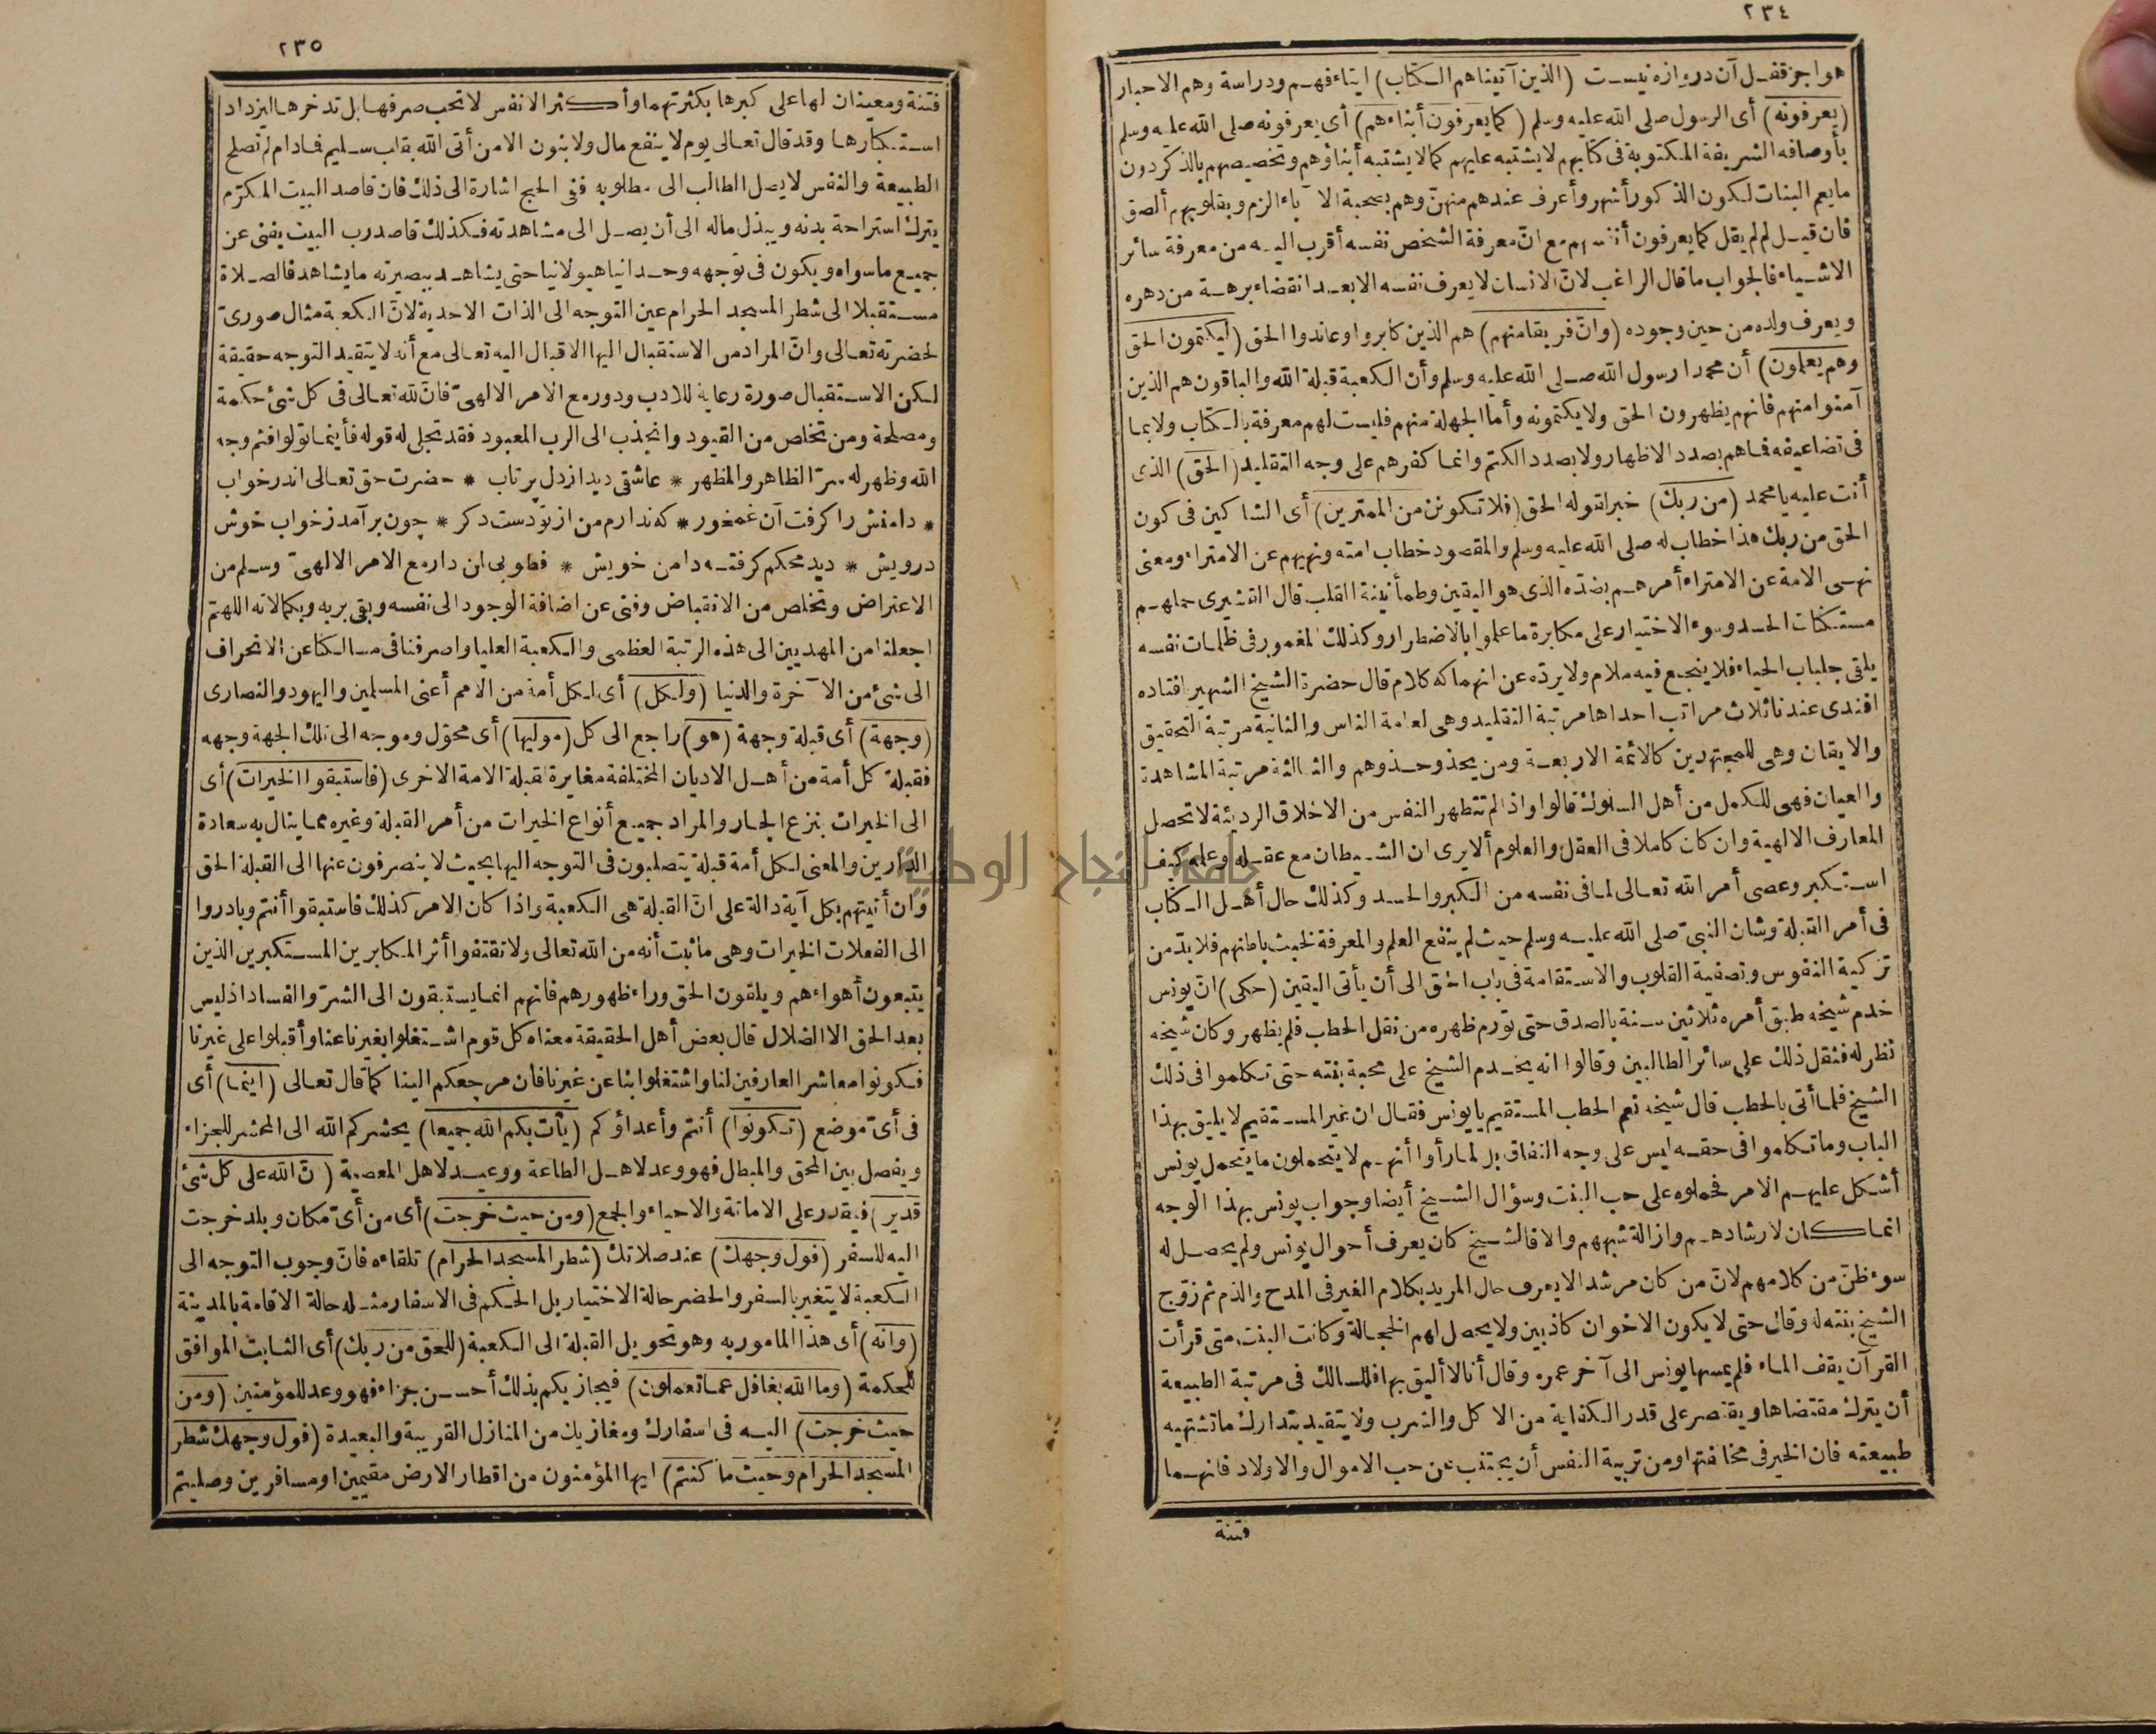 ٢٣٤
هوا جز قفل آن دروازه نيست (الذين آتيناهم الكتاب) ايتاء فهم ودراسة وهم الاحبار
(يعرفونه) أى الرسول صلى الله عليه وسلم (كما يعرفون أبناءهم) أى يعرفونه صلى الله عليه وسلم
بأوصافه الشريفة المكتوبة فى كتابهم لا يشتبه عليهم كما لا يشتبه أبناؤهم وتخصيصهم بالذكر دون
ما يعم البنات لكون الذكور أشهر وأعرف عندهم منهنّ وهم بصحبة الآباء الزم وبقلوبهم ألصق
فان قيل لم لم يقل كما يعرفون أنفسهم مع انّ معرفة الشخص نفسه أقرب اليه من معرفة سائر
الاشياء فالجواب ما قال الراغب لانّ الانسان لا يعرف نفسه الا بعد انقضاء برهة من دهره
ويعرف ولده من حين وجوده (وانّ فريقا منهم) هم الذين كابروا وعاندوا الحق (ليكتمون الحق
وهم يعلمون) أن محمدا رسول الله صلى الله عليه وسلم وأن الكعبة قبلة الله والباقون هم الذين
آمنوا منهم فانهم يظهرون الحق ولا يكتمونه وأما الجهلة منهم فليست لهم معرفة بالكتاب ولا بما
فى تضاعيفه فما هم بصدد الاظهار ولا بصدد الكتم وانما كفرهم على وجه التقليد (الحق) الذى
أنت عليه يا محمد (من ربك) خبر لقوله الحق (فلا تكونن من الممترين) أى الشاكين فى كون
الحق من ربك هذا خطاب له صلى الله عليه وسلم والمقصود خطاب امته ونهيهم عن الامتراء ومعنى
نهى الامة عن الامتراء أمرهم بضدّه الذى هو اليقين وطمأنينة القلب قال القشيرى حملهم
مستكنّات الحسد وسوء الاختيار على مكابرة ما علموا بالاضطرار وكذلك المغمور فى ظلمات نفسه
يلقى جلباب الحياء فلا ينجع فيه ملام ولا يردّه عن انهماكه كلام قال حضرة الشيخ الشهير افتاده
افندى عندنا ثلاث مراتب احداها مرتبة التقليد وهى لعامة الناس والثانية مرتبة التحقيق
والايقان وهى للمجتهدين كالائمة الاربعة ومن يحذو حذوهم والثالثة مرتبة المشاهدة
والعيان فهى للكمل من أهل السلوك قالوا واذا لم تتطهر النفس من الاخلاق الرديئة لا تحصل
المعارف الالهية وان كان كاملا فى العقل والعلوم ألا يرى ان الشيطان مع عقله وعلمه كيف
استكبر وعصى أمر الله تعالى لما فى نفسه من الكبر والحسد وكذلك حال أهل الكتاب
فى أمر القبلة وشان النبىّ صلى الله عليه وسلم حيث لم ينفع العلم والمعرفة لخبث باطنهم فلا بدّ من
تزكية النفوس وتصفية القلوب والاستقامة فى باب الحق الى أن يأتى اليقين (حكى) انّ يونس
خدم شيخه طبق أمره ثلاثين سنة بالصدق حتى تورّم ظهره من نقل الحطب فلم يظهر وكان شيخه
نظر له فثقل ذلك على سائر الطالبين وقالوا انه يخدم الشيخ على محبة بنته حتى تكلموا فى ذلك
الشيخ فلما أتى بالحطب قال شيخه نعم الحطب المستقيم يا يونس فقال ان غير المستقيم لا يليق بهذا
الباب وما تكلموا فى حقه ليس على وجه النفاق بل لما رأوا أنهم لا يتحملون ما يتحمل يونس
أشكل عليهم الامر فحملوه على حب البنت وسؤال الشيخ أيضا وجواب يونس بهذا الوجه
انما كان لارشادهم وازالة شبههم والا فالشيخ كان يعرف أحوال يونس ولم يحصل له
سوء ظنّ من كلامهم لانّ من كان مرشدا لا يعرف حال المريد بكلام الغير فى المدح والذم ثم زوّج
الشيخ بنته له وقال حتى لا يكون الاخوان كاذبين ولا يحصل لهم الخجالة وكانت البنت متى قرأت
القرآن يقف الماء فلم يمسها يونس الى آخر عمره وقال أنا لا أليق بها فللسالك فى مرتبة الطبيعة
أن يترك مقتضاها ويقتصر على قدر الكفاية من الاكل والشرب ولا يتقيد بتدارك ما تشتهيه
طبيعته فان الخير فى مخالفتها ومن تربية النفس أن يجتنب عن حب الاموال والاولاد فانهما
فتنة
٢٣٥
فتنة ومعينان لها على كبرها بكثرتهما وأكثر الانفس لا تحب صرفها بل تدخرها ليزداد
استكبارها وقد قال تعالى يوم لا ينفع مال ولا بنون الا من أتى الله بقلب سليم فما دام لم تصلح
الطبيعة والنفس لا يصل الطالب الى مطلوبه ففى الحج اشارة الى ذلك فان قاصد البيت المكرّم
يترك استراحة بدنه ويبذل ماله الى أن يصل الى مشاهدته فكذلك قاصد رب البيت يفنى عن
جميع ماسواه ويكون فى توجهه وحدانيا هيولانيا حتى يشاهد ببصيرته ما يشاهد فالصلاة
مستقبلا الى شطر المسجد الحرام عين التوجه الى الذات الاحدية لانّ الكعبة مثال صورىّ
لحضرته تعالى وانّ المراد من الاستقبال اليها الاقبال اليه تعالى مع أنه لا يتقيد التوجه حقيقة
لكن الاستقبال صورة رعاية للادب ودور مع الامر الالهىّ فانّ لله تعالى فى كل شئ حكمة
ومصلحة ومن تخلص من القيود وانجذب الى الرب المعبود فقد تجلى له قوله فأينما تولوا فثم وجه
الله وظهر له سرّ الظاهر والمظهر * عاشقى ديد از دل پرتاب * حضرت حق تعالى اندر خواب
* دامنش را كرفت آن غمخور * كه ندارم من از تو دست دكر * چون برآمد ز خواب خوش
درويش * ديد محكم كرفته دامن خويش * فطوبى لمن دار مع الامر الالهىّ وسلم من
الاعتراض وتخلص من الانقباض وفنى عن اضافة الوجود الى نفسه وبقى بربه وبكمالاته اللهمّ
اجعلنا من المهديين الى هذه الرتبة العظمى والكعبة العليا واصرفنا فى مسالكنا عن الانحراف
الى شئ من الآخرة والدنيا (ولكل) أى لكل أمة من الامم أعنى المسلمين واليهود والنصارى
(وجهة) أى قبلة وجهة (هو) راجع الى كل (موليها) أى محوّل وموجه الى تلك الجهة وجهه
فقبلة كل أمة من أهل الاديان المختلفة مغايرة لقبلة الامة الاخرى (فاستبقوا الخيرات) أى
الى الخيرات بنزع الجار والمراد جميع أنواع الخيرات من أمر القبلة وغيره مما ينال به سعادة
الدارين والمعنى لكل أمة قبلة يتصلبون فى التوجه اليها بحيث لا ينصرفون عنها الى القبلة الحق
وان أتيتهم بكل آية دالة على انّ القبلة هى الكعبة واذا كان الامر كذلك فاستبقوا أنتم وبادروا
الى الفعلات الخيرات وهى ما ثبت أنه من الله تعالى ولا تقتفوا أثر المكابرين المستكبرين الذين
يتبعون أهواءهم ويلقون الحق وراء ظهورهم فانهم انما يستبقون الى الشرّ والفساد اذ ليس
بعد الحق الا الضلال قال بعض أهل الحقيقة معناه كل قوم اشتغلوا بغيرنا عنا وأقبلوا على غيرنا
فكونوا معاشر العارفين لنا واشتغلوا بنا عن غيرنا فان مرجعكم الينا كما قال تعالى (اينما) أى
فى أىّ موضع (تكونوا) أنتم وأعداؤكم (يأت بكم الله جميعا) يحشركم الله الى المحشر للجزاء
ويفصل بين المحق والمبطل فهو وعد لاهل الطاعة ووعيد لاهل المعصية (انّ الله على كل شئ
قدير) فيقدر على الاماتة والاحياء والجمع (ومن حيث خرجت) أى من أىّ مكان وبلد خرجت
اليه للسفر (فول وجهك) عند صلاتك (شطر المسجد الحرام) تلقاءه فانّ وجوب التوجه الى
الكعبة لا يتغير بالسفر والحضر حالة الاختيار بل الحكم فى الاسفار مثله حالة الاقامة بالمدينة
(وانه) أى هذا المامور به وهو تحويل القبلة الى الكعبة (للحق من ربك) أى الثابت الموافق
للحكمة (وما الله بغافل عما تعملون) فيجازيكم بذلك أحسن جزاء فهو وعد للمؤمنين (ومن
حيث خرجت) اليه فى اسفارك ومغازيك من المنازل القريبة والبعيدة (فول وجهك شطر
المسجد الحرام وحيث ما كنتم) ايها المؤمنون من اقطار الارض مقيمين او مسافرين وصليتم
جامعة النجاح الوطنية